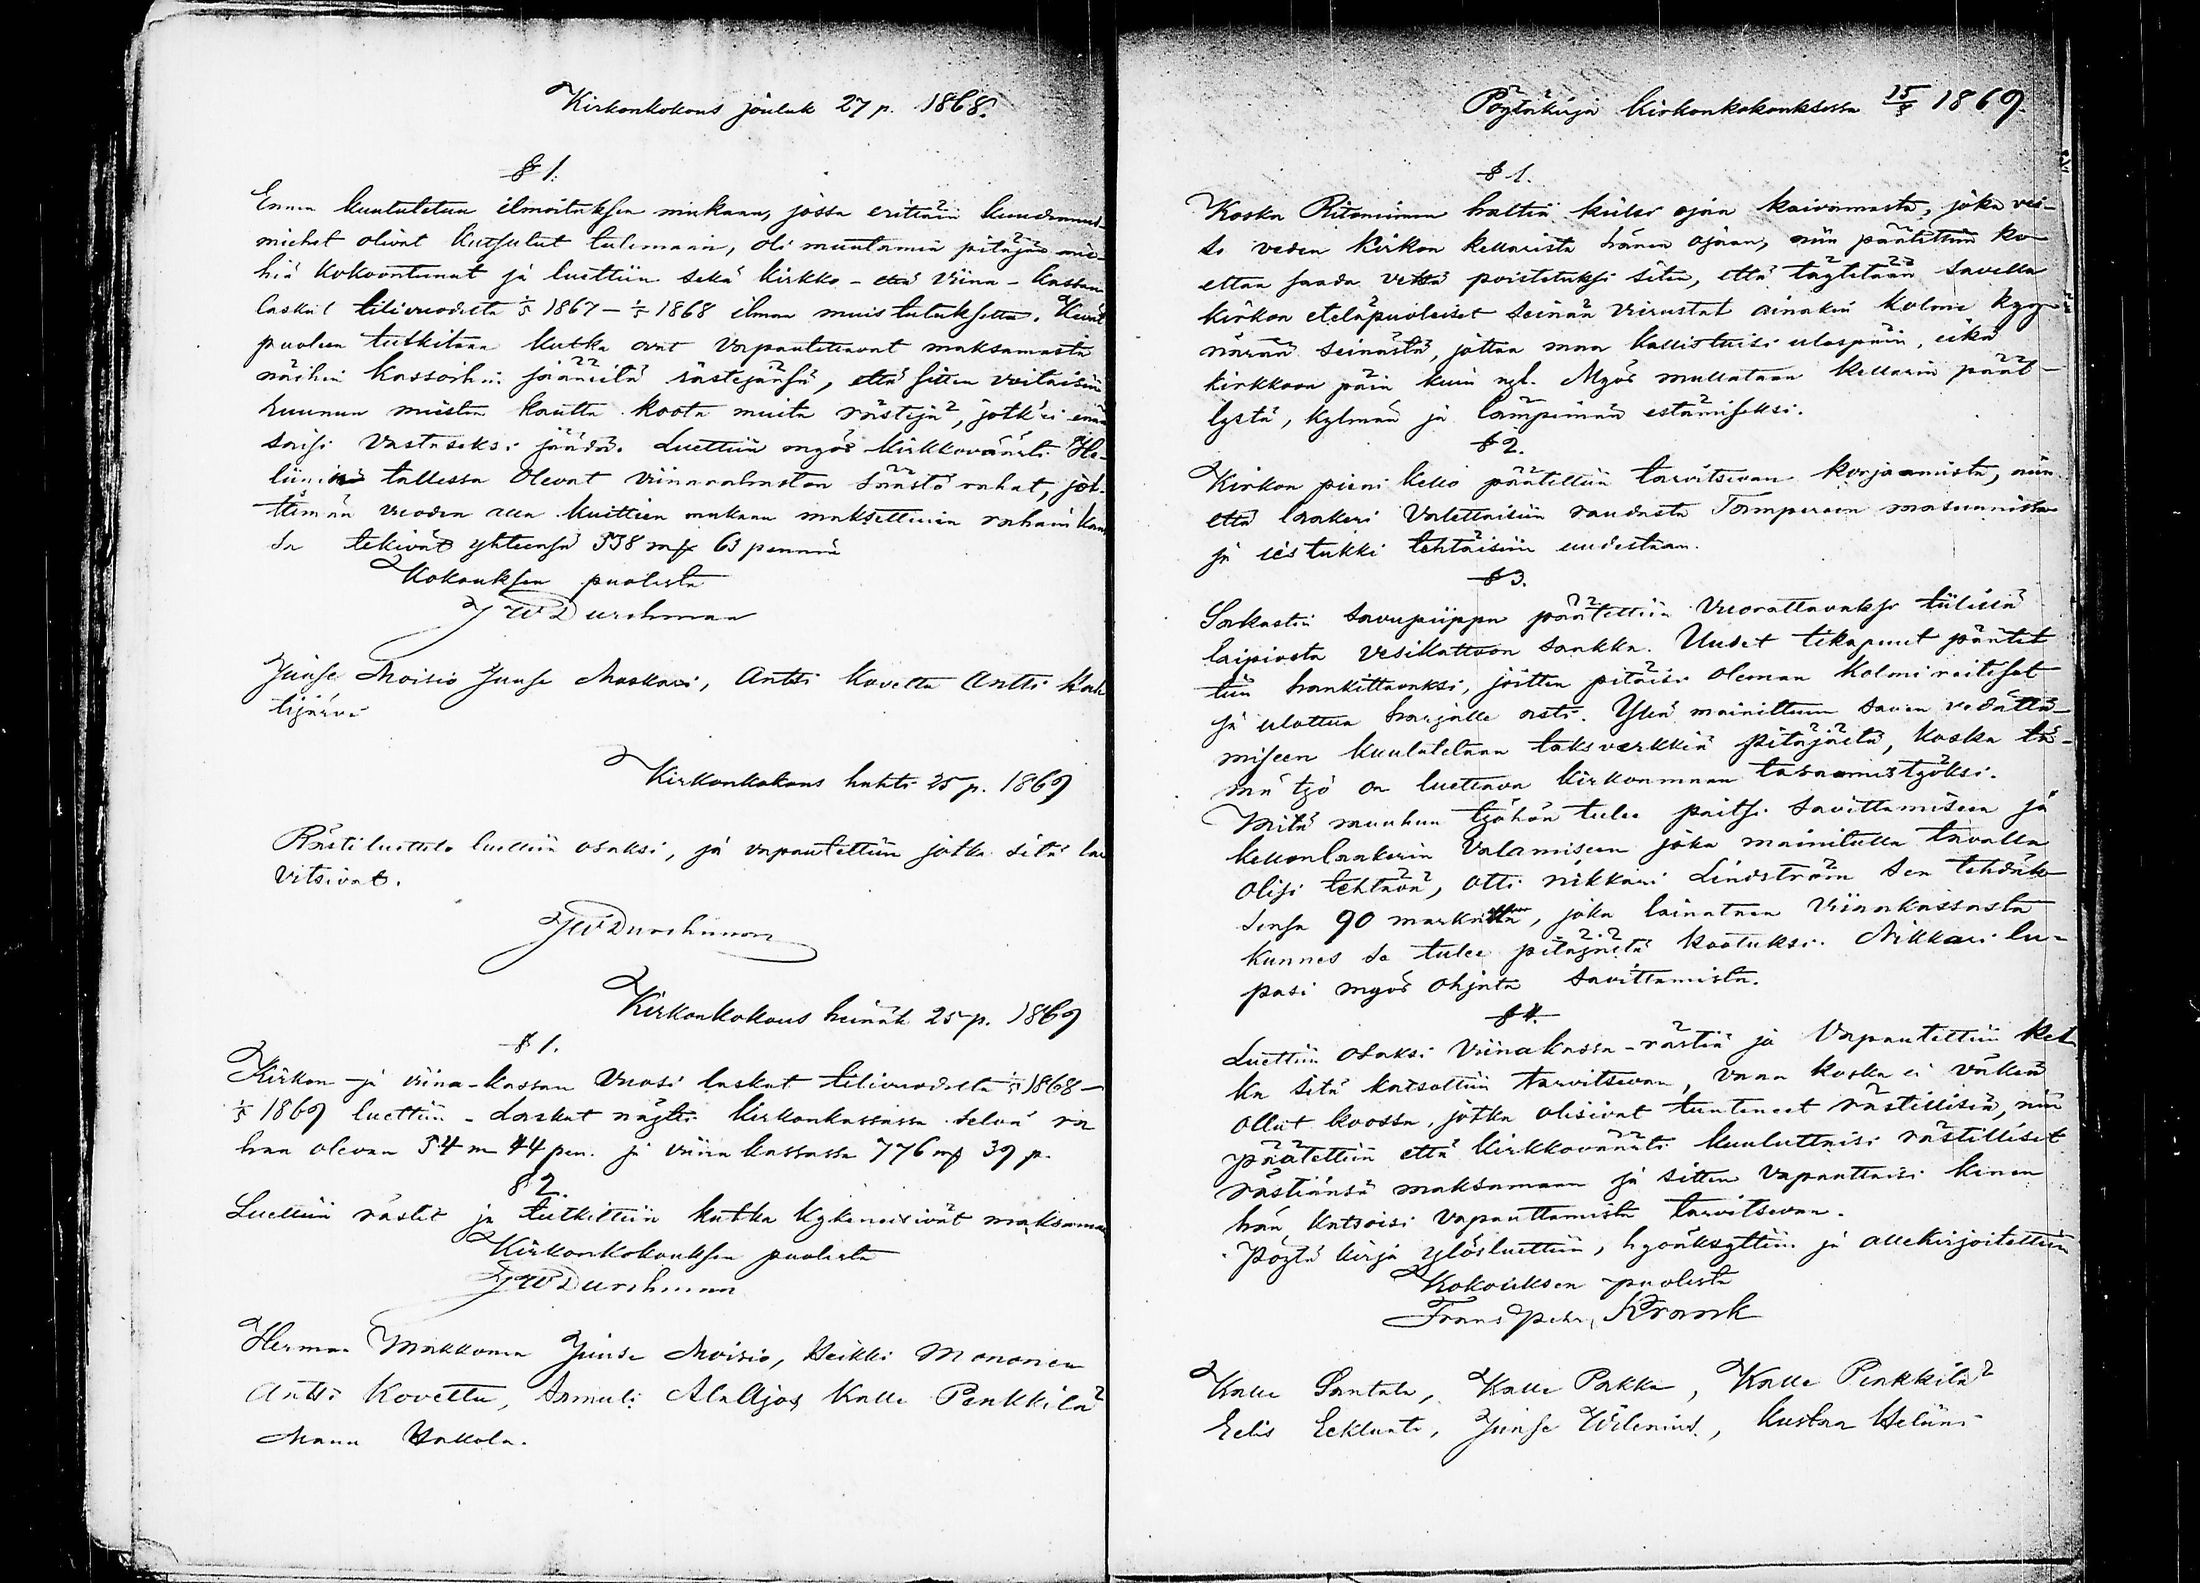 Kirkonkokous jouluk 27 p. 1868.
§ 1.
Ennen kuulutetun ilmoituksen mukaan, jossa erittäin kuudennus-
miehet olivat kutsutut tulemaan, oli muutamia pitäjän mie-
hiä kokoontunut ja luettiin sekä kirkko- että viina-kassan
laskut tilivuodelta 1/5 1867 – 1/5 1868 ilman muistutuksetta.
puoleen tutkitaan kutka ovat vapautettavat maksamasta
näihin kassoihin jääneitä rästejänsä, että sitten voitaisiin
ruunun miesten kautta koota muita rästejä, jotk'ei enää
saisi vastaseksi jäädä. Luettiin myös kirkkoväärti He-
liinin tallessa olevat viinarahaston säästö rahat, jot-
tämän vuoden alla kuittien mukaan maksettuin rahain kans-
sa tekivät yhteensä 538 mk 63 penniä
Kokouksen puolesta
J W Durchman
Juuse Moisio Juuse Maskari, Antti Kovetta Antti
lijärvi
Kirkonkokous huhti 25 p. 1869
Rästiluettelo luettiin osaksi, ja vapautettiin jotka sitä tar-
vitsivat.
J W Durchman
Kirkonkokous heinäk 25 p. 1869
§ 1.
Kirkon- ja viina-kassan vuosi laskut tilivuodelta 1/5 1868 –
1/5 1869 luettiin. Laskut näytti kirkonkassassa selvä ra
haa olevan 54 m 44 pen. ja viina kassassa 776 mk 39 p.
§ 2.
Luettiin rästit ja tutkittiin kutka kykeneisivät maksamaa
Kirkonkokouksen puolesta
J W Durchman
Herman Makkonen Juuse Moisio, Heikki Mononen
Antti Kovetta, Samuli Alaäijös Kalle Penkkilä
Manu Hakola.
Pöytäkirja kirkonkokouksessa 15/8 1869.
§ 1.
Koska Ritoniemen haltia kielsi ojan kaivamasta, joka vei-
si veden kirkon kellarista hänen ojaan, niin päätettiin ko-
ettaa saada vettä poistetuksi siten, että täytetään savella
kirkon eteläpuoleiset seinän vierustat ainakin kolmi kyy-
närää seinästä, jottaa maa kallistuisi ulospäin, eikä
kirkkoon päin kuin nyt. Myös mullataan kellarin päät-
lystä, kylmän ja lämpimän estämiseksi.
§ 2.
Kirkon pieni kello päätettiin tarvitsevan korjaamista, niin
että laakeri valettaisiin raudasta Tampereen masuunissa
ja istukki tehtäisiin uudestaan.
§ 3.
Sakastin savupiippu päätettiin vuorattavaksi tiilillä
laipiosta vesikattoon saakka. Uudet tikapuut päätet
tiin hankittavaksi, joitten pitäisi oleman kolmi reitiset
ja ulottua harjalle asti. Yllä mainittuun saven vedättä-
miseen kuulutetaan taksverkkiä pitäjältä, koska tä-
mä työ on luettava kirkonmaan tasaamistyöksi.
Mitä muuhun työhön tulee paitsi savittamiseen ja
kellonlaakerin valamiseen joka mainitulla tavalla
olisi tehtävä, otti nikkari Lindström sen tehdäk-
sensä 90 markalla, joka lainataan viinakassasta
kunnes se tulee pitäjältä kootuksi. Nikkari lu-
pasi myös ohjata savittamista.
§ 4.
Luettiin osaksi viinakassa-rästiä ja vapautettiin ket-
kä sitä katsottiin tarvitsevan, vaan koska ei väkeä
ollut koossa, jotka olisivat tunteneet rästillisiä, niin
päätettiin että kirkkoväärti kuuluttaisi rästilliset
rästiänsä maksamaan ja sitten vapauttaisi kenen
hän katsoisi vapauttamista tarvitsevan.
Pöytä kirja ylösluettiin, hyväksyttiin ja allekirjoitettiin
Kokouksen puolesta
Frans Pehr. Krank
Kalle Santala, Kalle Pakka, Kalle Penkkilä
Eelis Eeklunti, Juuse Wilenius, Kustaa Heliini